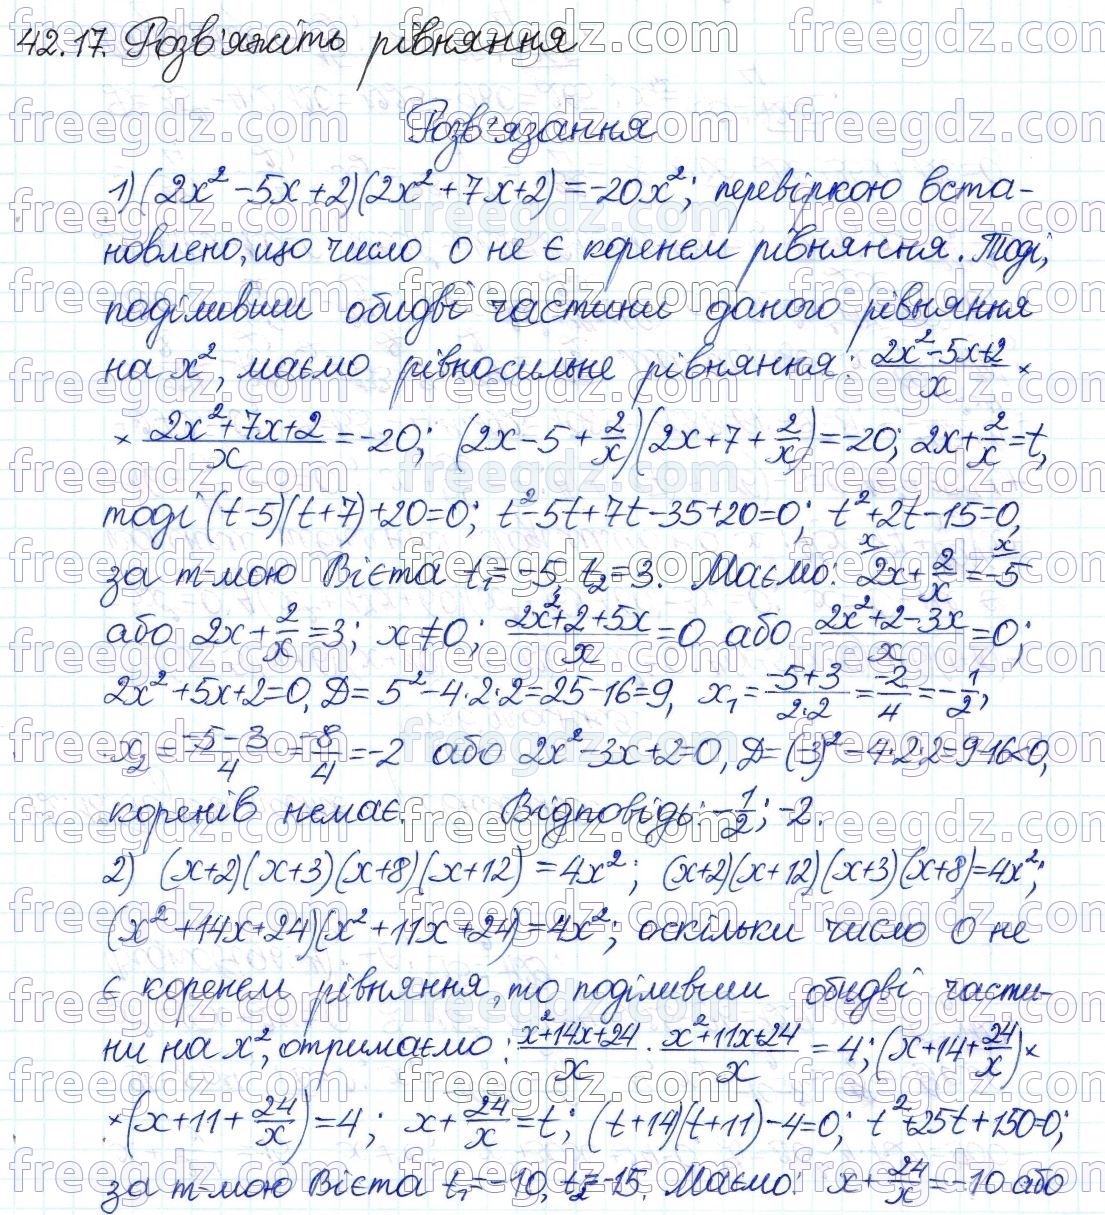 42.17. Розв'яжіть рівняння
Розв'язання
1) (2x² -5x+2)(2x² +7x+2) = -20x²; перевіркою вста-
новлено, що число 0 не є коренем рівняння. Тоді,
поділивши обидві частини даного рівняння
на x², маємо рівносильне рівняння: (2x²-5x+2)/x ×
× (2x²+7x+2)/x = -20; (2x-5+2/x)(2x+7+2/x) = -20; 2x+2/x = t,
тоді (t-5)(t+7)+20=0; t²-5t+7t-35+20=0; t²+2t-15=0,
за т-мою Вієта t₁=-5, t₂=3. Маємо: 2x+2/x=-5
або 2x+2/x=3; x≠0; (2x²+2+5x)/x=0 або (2x²+2-3x)/x=0;
2x²+5x+2=0, D= 5²-4·2·2=25-16=9, x₁=(-5+3)/(2·2)=-2/4=-1/2,
x₂=(-5-3)/4=-8/4=-2 або 2x²-3x+2=0, D=(-3)²-4·2·2=9-16<0,
коренів немає. Відповідь: -1/2; -2.
2) (x+2)(x+3)(x+8)(x+12)=4x²; (x+2)(x+12)(x+3)(x+8)=4x²;
(x²+14x+24)(x²+11x+24)=4x²; оскільки число 0 не
є коренем рівняння, то поділивши обидві части-
ни на x², отримаємо: (x²+14x+24)/x · (x²+11x+24)/x = 4; (x+14+24/x)×
×(x+11+24/x)=4; x+24/x=t; (t+14)(t+11)-4=0; t²+25t+150=0;
за т-мою Вієта t₁=-10, t₂=-15. Маємо: x+24/x=-10 або